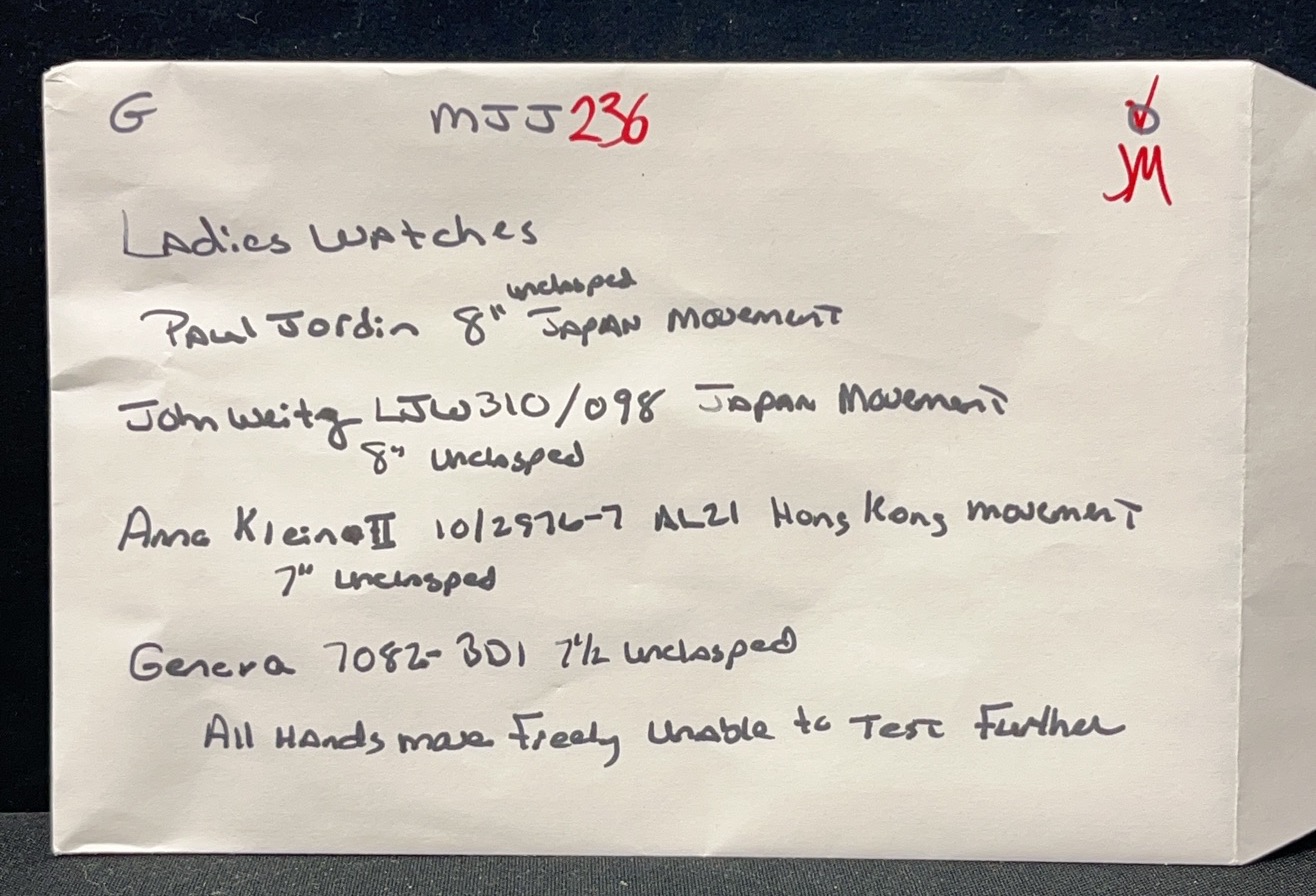 G MJJ236
JM
Ladies Watches
Paul Jordin 8" unclasped Japan Movement
John Weitz LJW310/098 Japan Movement
8" unclasped
Anna Klein II 10/2976-7 AL21 Hong Kong movement
7" unclasped
Geneva 7082-BD1 7 1/2" unclasped
All Hands move Freely Unable to Test Further